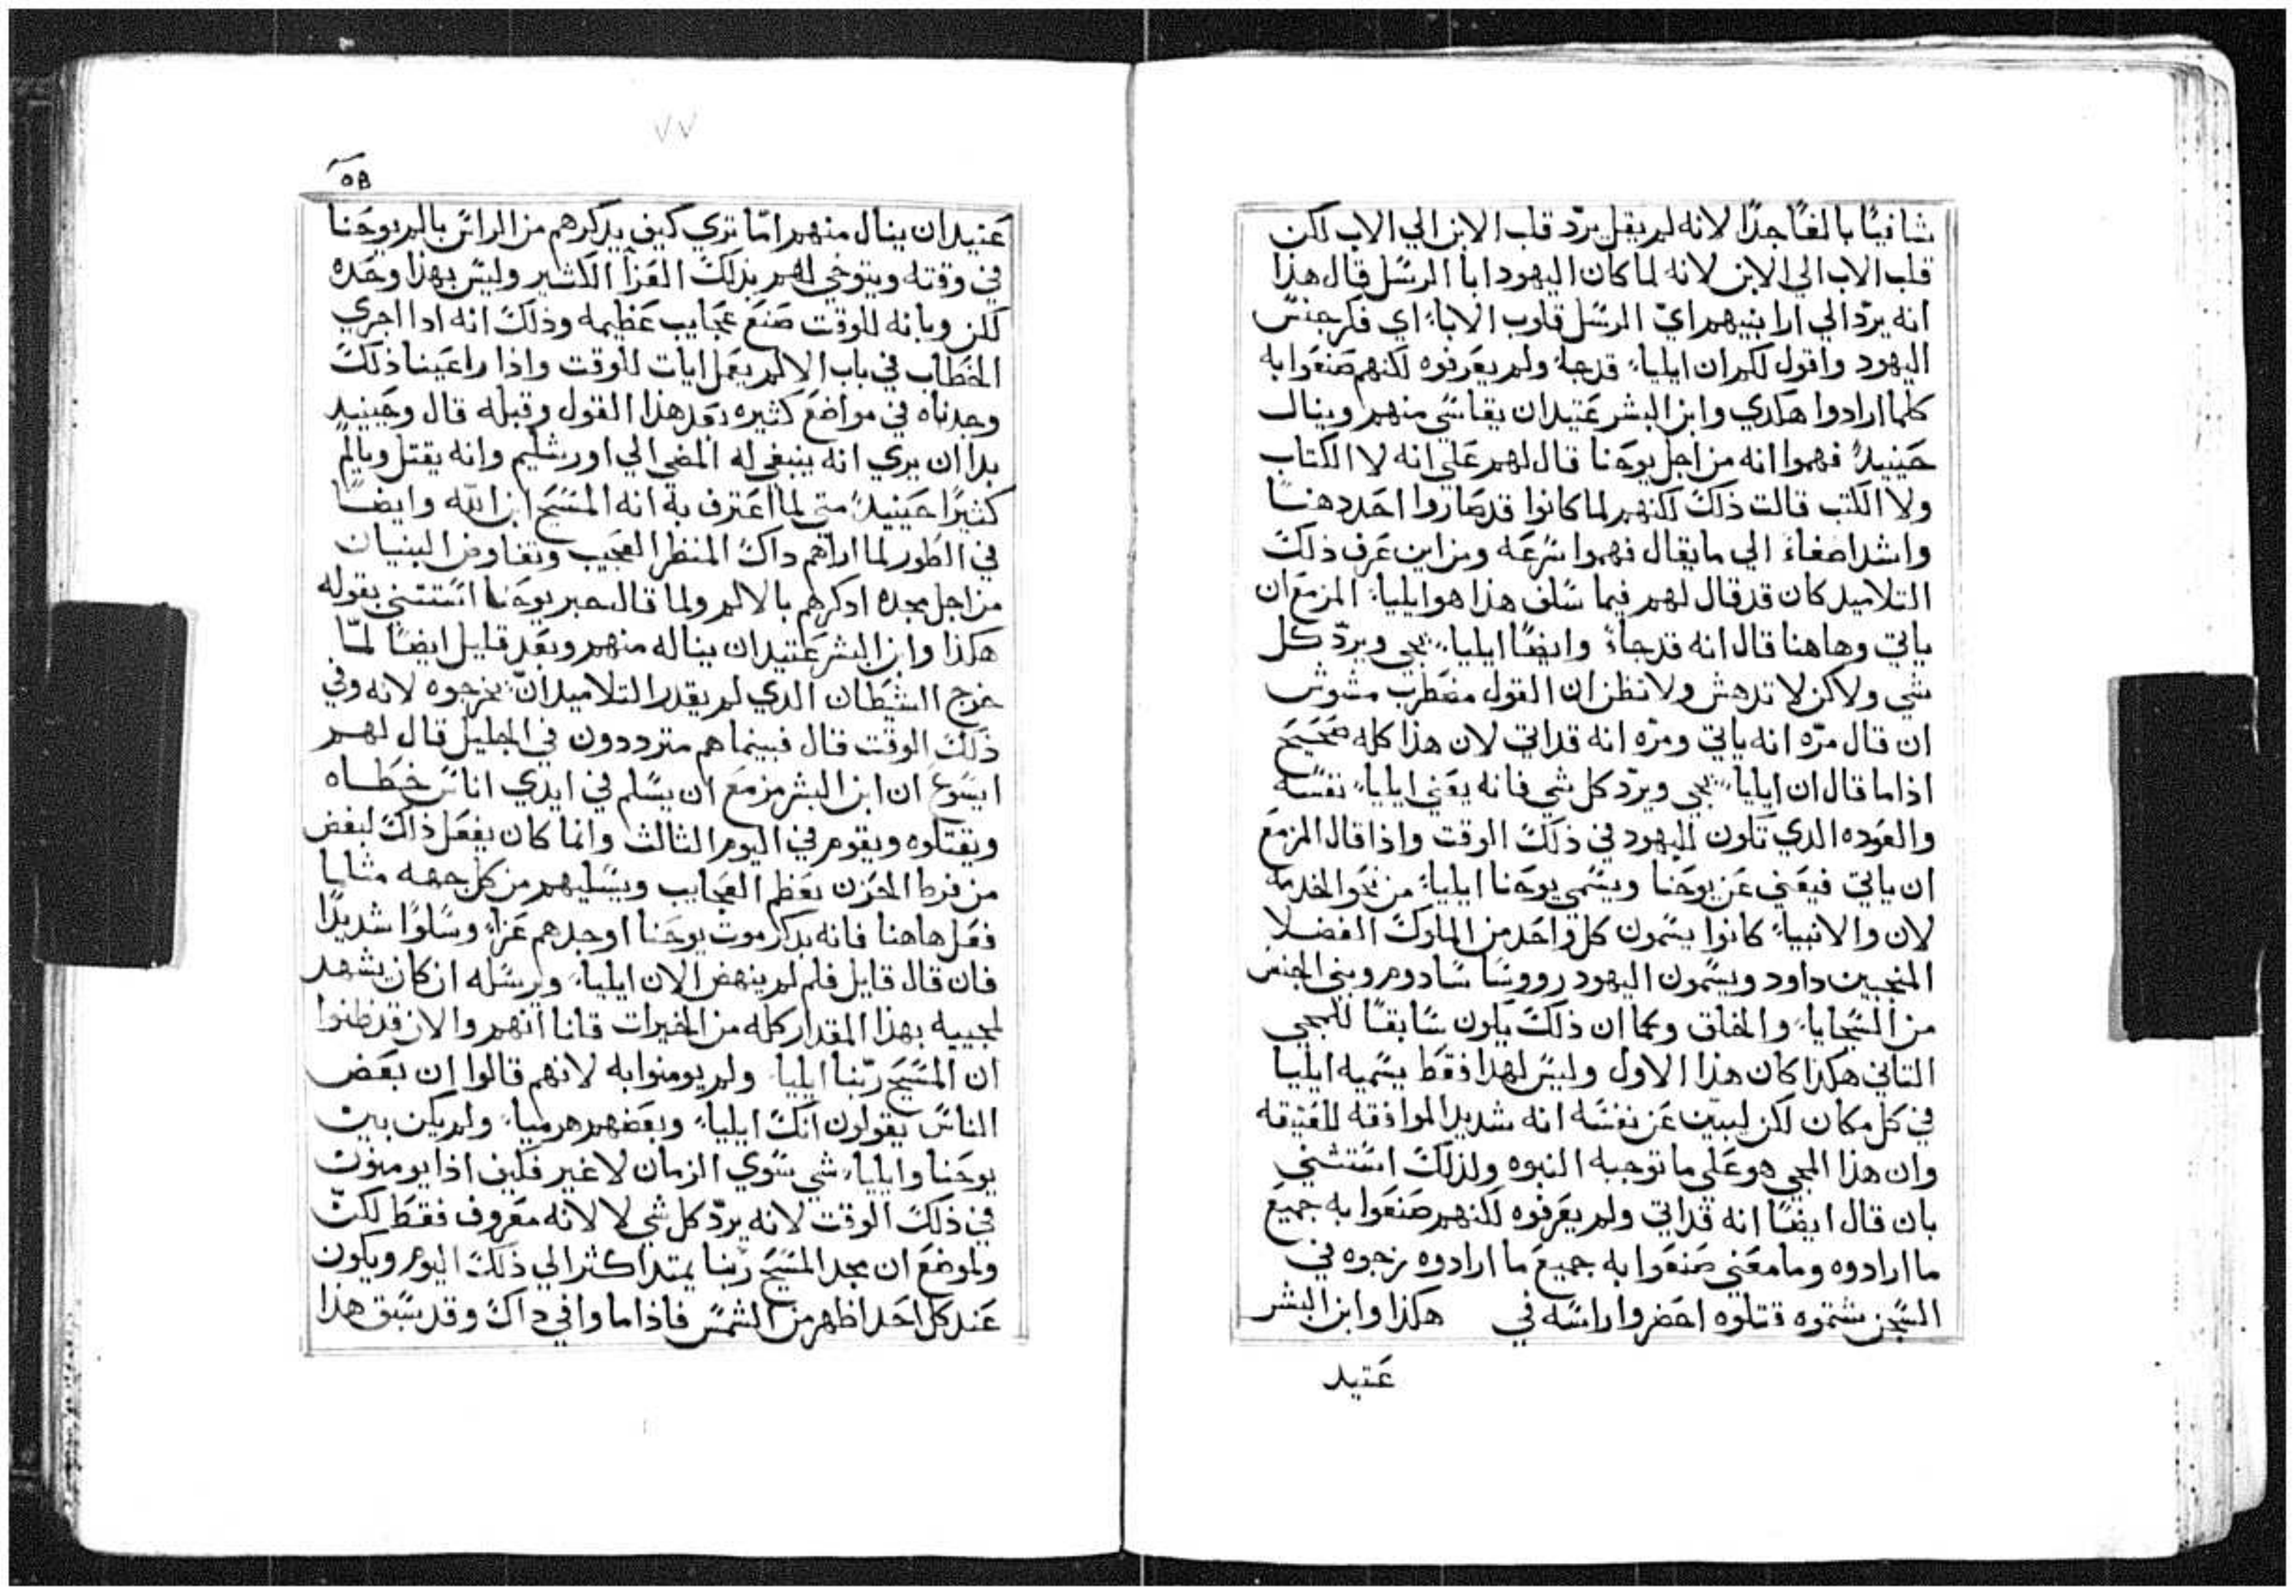 شافيًا بالغًا جدًا لانه لم يقل يردّ قلب الابن الي الاب لكن
قلب الاب الي الابن لانه لما كان اليهود ابا الرسل قال هذا
انه يردّ الي ارا بنيهم اي الرسل قلوب الاباء اي فكر جنس
اليهود واقول لكم ان ايلياء قد جاء ولم يعرفوه لكنهم صنعوا به
كلما ارادوا هكدي وابن البشر عتيد ان يقاسي منهم وينال
حينيدٍ فهموا انه من اجل يوحنا قال لهم علي انه لا الكتاب
ولا الكتب قالت ذلك لكنهم لما كانوا قد صاروا احدّ دهنًا
واشد اصغاء الي ما يقال فهموا سرعه ومن اين عرف ذلك
التلاميد كان قد قال لهم فيما سلف هذا هو ايلياء المزمع ان
ياتي وهاهنا قال انه قد جاء وايضًا ايلياء يجي ويردّ كل
شي ولاكن لا تدهش ولا تظن ان القول مضطرب مشوش
ان قال مرّه انه ياتي ومرّه انه قد اتي لان هذا كله صحيح
اذا ما قال ان ايلياء يجي ويردّ كل شي فانه يعني ايلياء نفسه
والعوده الدي تكون لليهود في ذلك الوقت واذا قال المزمع
ان ياتي فيعني عن يوحنا ويسمي يوحنا ايلياء من نحو الخدمه
لان والانبياء كانوا يسمون كل واحد من الملوك الفضلا
المنجبين داود ويسمون اليهود رووسا سادوم وبني الجنس
من السجايا والخلق وكما ان ذلك يكون سابقًا للمجي
التاني هكذا كان هذا الاول وليس لهدا فقط يسميه ايليا
في كل مكان لكن ليبين عن نفسه انه شديد الموافقه للعتيقه
وان هذا المجي هو علي ما توجبه النبوه ولذلك استثني
بان قال ايضًا انه قد اتي ولم يعرفوه لكنهم صنعوا به جميع
ما ارادوه وما معني صنعوا به جميع ما ارادوه زجوه في
السجن شتموه قتلوه احضروا راسه في هكذا وابن البشر
عتيد
٧٧
عتيد ان ينال منهم امّا تري كيف يدكرهم من الراس بالم يوحنا
في وقته ويتوخي لهم بذلك العزا الكثير وليس بهذا وحده
لكن وبانه للوقت صنع عجايب عظيمه وذلك انه ادا اجري
الخطاب في باب الالم يعمل ايات للوقت واذا راعينا ذلك
وجدناه في مواضع كثيره بعد هذا القول وقبله قال وحينيد
بدا ان يري انه ينبغي له المضي الي اورشليم وانه يقتل ويالم
كثيرًا حينيدٍ متي لما اعترف به انه المسيح ابن الله وايضًا
في الطور لما اراهم داك المنظر العجيب وتفاوض النبيان
من اجل مجده ادكرهم بالالم ولما قال خبر يوحنا استتني بقوله
هكذا وابن البشر عتيد ان يناله منهم وبعد قليل ايضًا لمّا
خرج الشيطان الدي لم يقدر التلاميد انّ يخرجوه لانه وفي
ذلك الوقت قال فبينما هم مترددون في الجليل قال لهم
ايسوع ان ابن البشر مزمع ان يسلم في ايدي اناس خطاه
ويقتلوه ويقوم في اليوم الثالث وانما كان يفعل ذاك ليغض
من فرط الحزن بعظم العجايب ويسليهم من كل جهه مثلما
فعل هاهنا فانه بدكر موت يوحنا اوجدهم عزاء وسلوًا شديدًا
فان قال قايل فلم لم ينهض الان ايلياء ويرسله ان كان يشهد
لمجييه بهذا المقدار كله من الخيرات قلنا انهم والان قد ظنوا
ان المسيح ربّنا ايليا ولم يومنوا به لانهم قالوا ان بعض
الناس يقولون انك ايلياء وبعضهم هرمياء ولم يكن بين
يوحنا وايلياء شي سوي الزمان لا غير فكيف اذا يومنون
في ذلك الوقت لانه يردّ كل شي لا لانه معروف فقط لكنّ
ولموضع ان مجد المسيح ربّنا يمتد اكثر الي ذلك اليوم ويكون
عند كل احد اظهر من الشمس فاذا ما وافي داك وقد سبق هذا